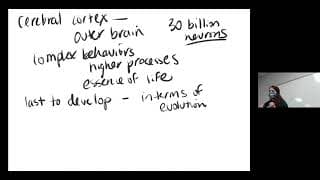 cerebral cortex —
outer brain
30 billion
neurons
complex behaviors
higher processes
essence of life
last to develop - in terms of
evolution